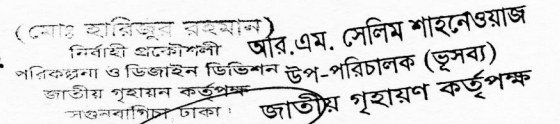 (মোঃ হারিজুর রহমান)
নির্বাহী প্রকৌশলী
পরিকল্পনা ও ডিজাইন ডিভিশন
জাতীয় গৃহায়ন কর্তৃপক্ষ
সেগুনবাগিচা, ঢাকা।
আর.এম. সেলিম শাহনেওয়াজ
উপ-পরিচালক (ভূসব্য)
জাতীয় গৃহায়ণ কর্তৃপক্ষ